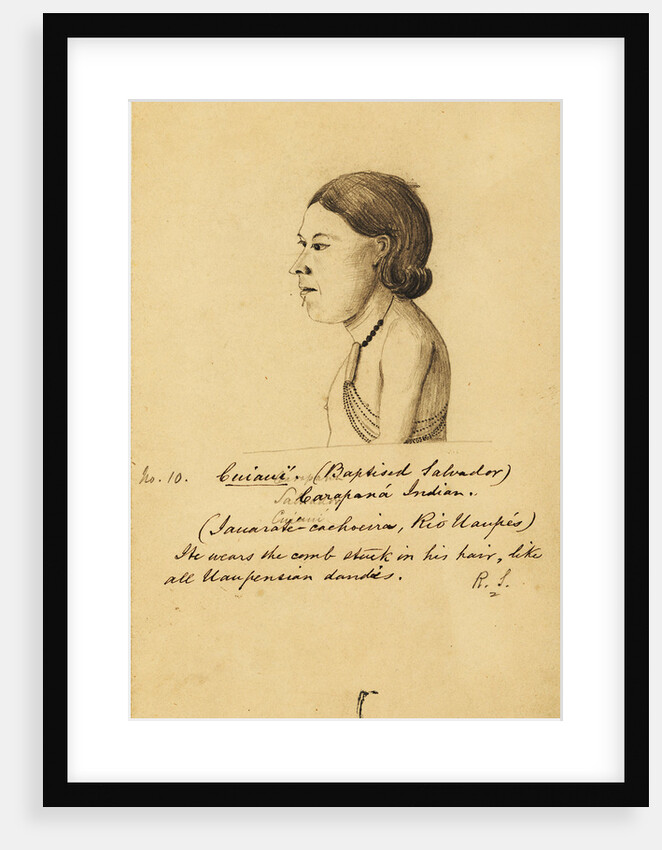 No. 10. Cuiauí. (Baptised Salvador)
Carapaná Indian.
Cuiauí
(Jauarate-cachoeira, Rio Uaupés)
He wears the comb stuck in his hair, like
all Uaupensian dandies.
R. S.